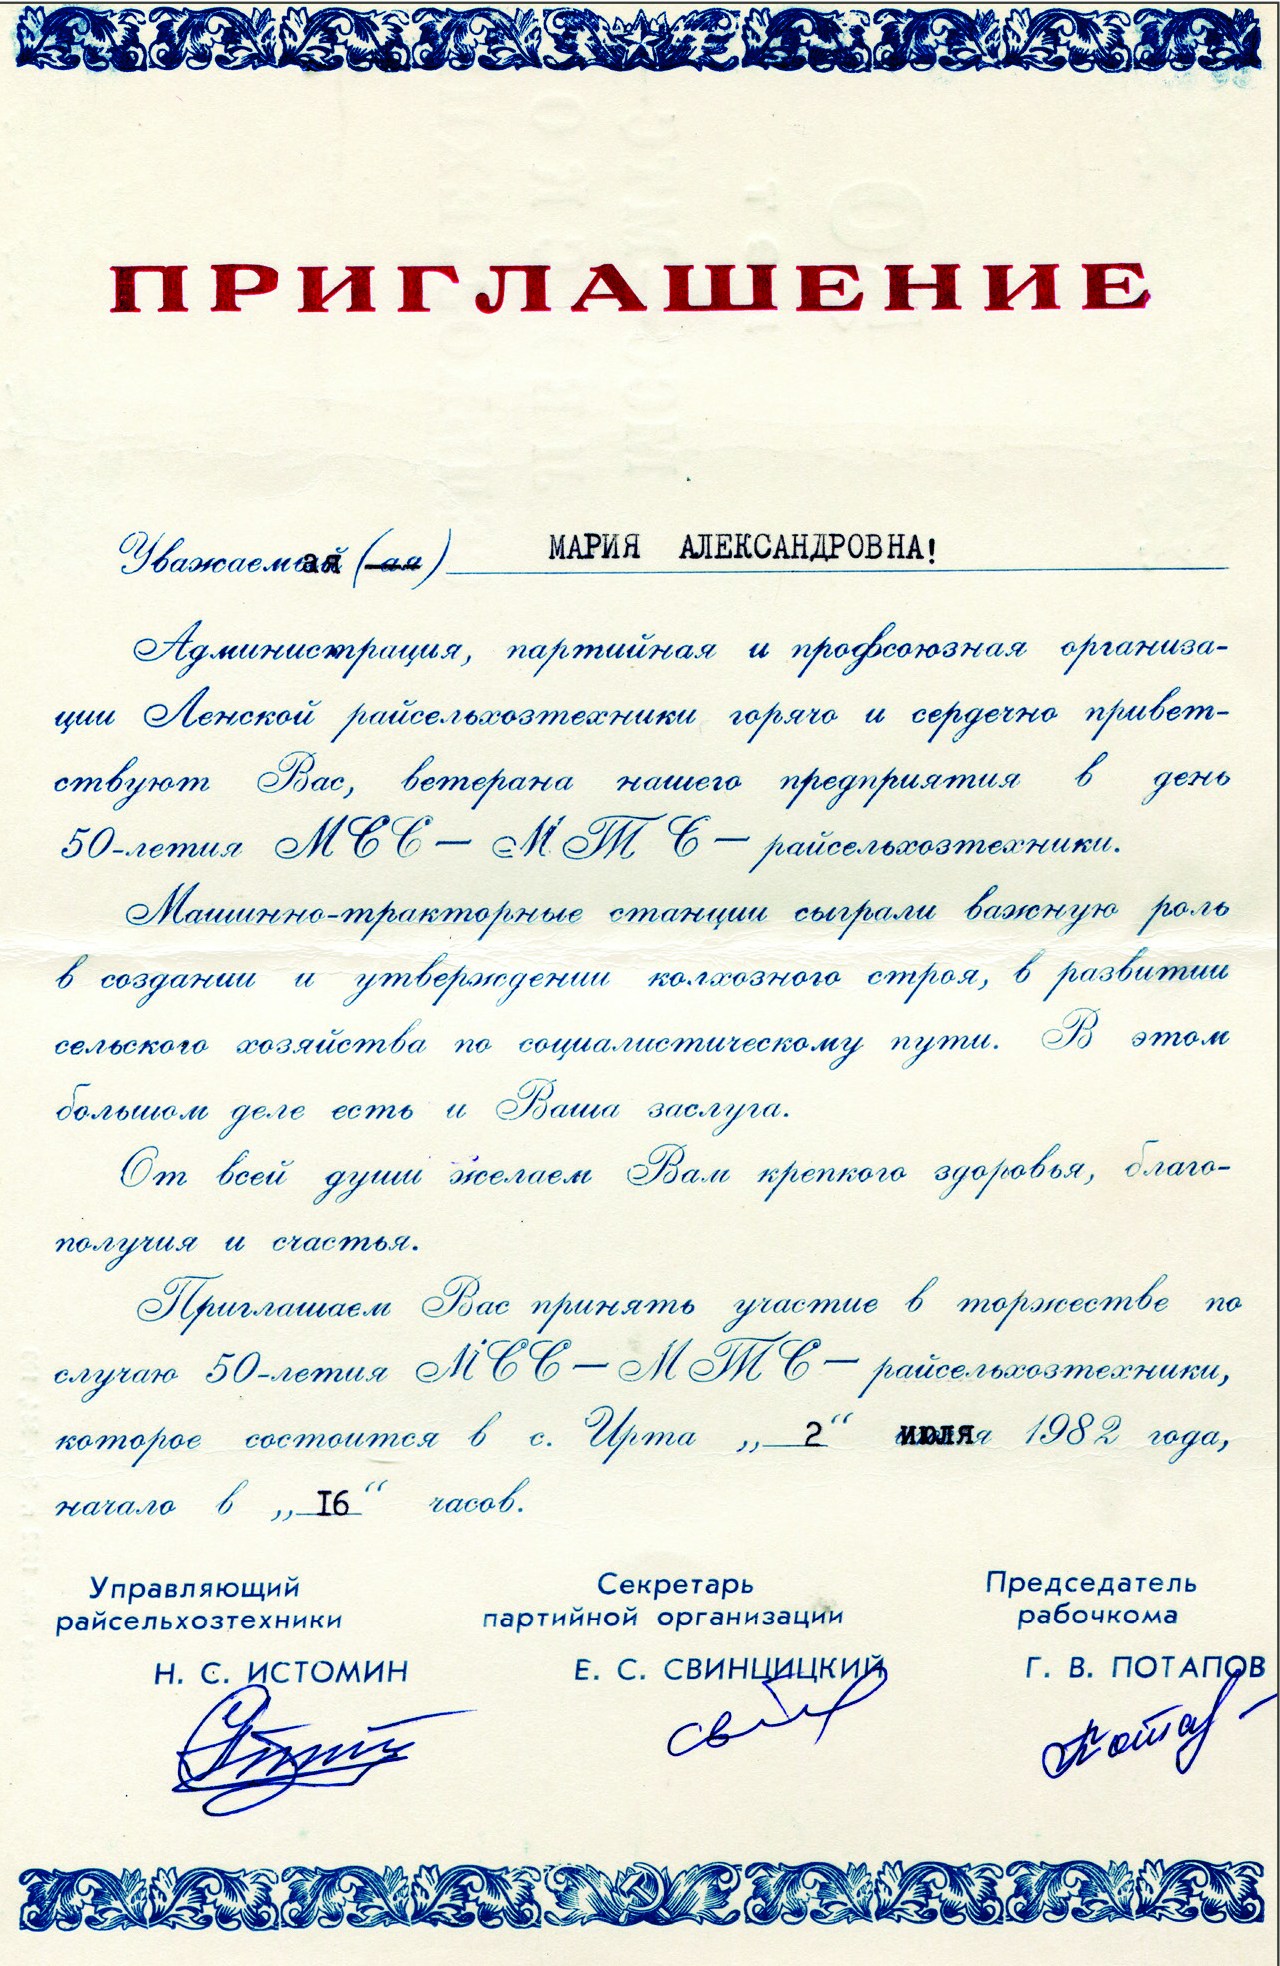 ПРИГЛАШЕНИЕ
Уважаемая (ая) МАРИЯ АЛЕКСАНДРОВНА!
Администрация, партийная и профсоюзная организа-
ции Ленской райсельхозтехники горячо и сердечно привет-
ствуют Вас, ветерана нашего предприятия в день
50-летия МСС — МТС — райсельхозтехники.
Машинно-тракторные станции сыграли важную роль
в создании и утверждении колхозного строя, в развитии
сельского хозяйства по социалистическому пути. В этом
большом деле есть и Ваша заслуга.
От всей души желаем Вам крепкого здоровья, благо-
получия и счастья.
Приглашаем Вас принять участие в торжестве по
случаю 50-летия МСС — МТС — райсельхозтехники,
которое состоится в с. Ирта „2“ июля 1982 года,
начало в „16“ часов.
Управляющий Секретарь Председатель
райсельхозтехники партийной организации рабочкома
Н. С. ИСТОМИН Е. С. СВИНЦИЦКИЙ Г. В. ПОТАПОВ